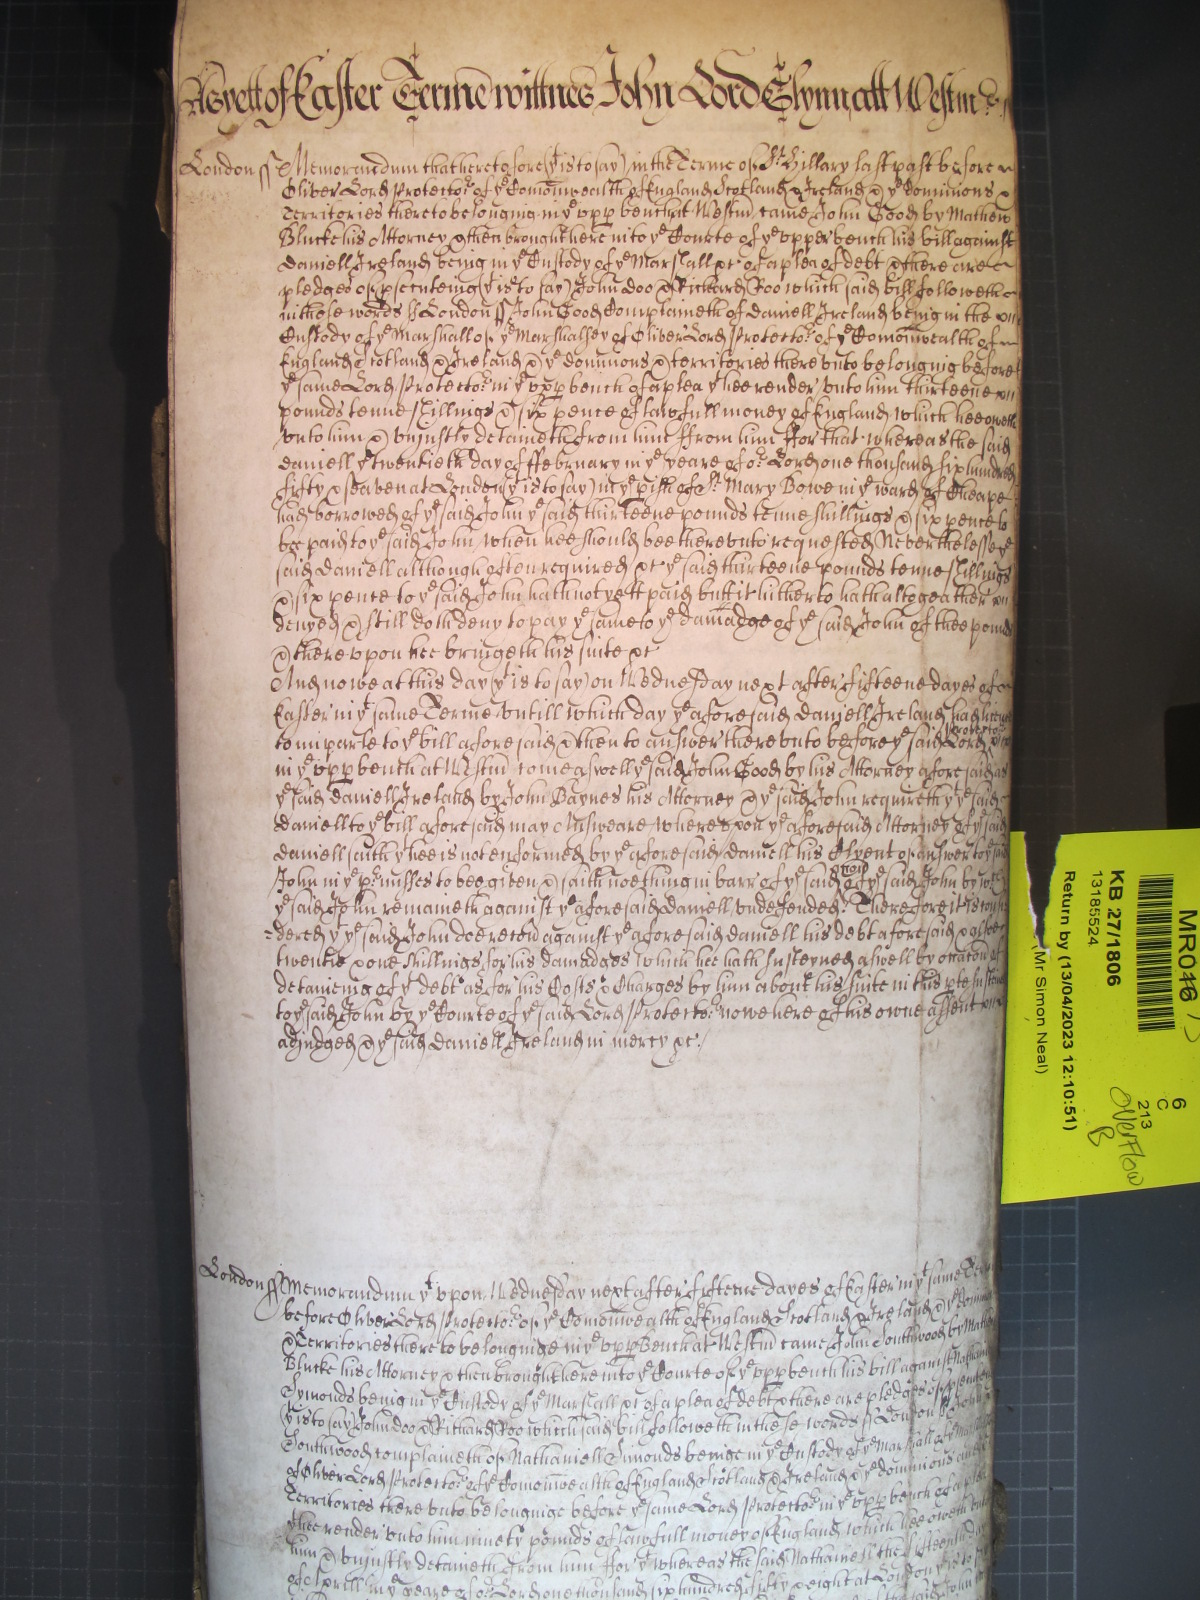 As yett of Easter Terme wittnes John Lord Glynn att Westmr
London ss Memorandum that heretofore (yt is to say) in the Terme of St Hillary last past before
Oliver Lord Protector of ye Comonwealth of England Scotland & Ireland & ye dominions &
Territories thereto belonging in ye upp bench at Westm came John Good by Mathew
Blucke his Attorney & then brought here into ye Courte of ye upper bench his bill against
Daniell Ireland being in ye Custody of ye Marshall &c of a plea of debt & there are
pledges of psecuteing (yt is to say) John Doo & Richard Roo which said bill followeth
in these words ss London ss John Good Complaineth of Daniell Ireland being in the
Custody of ye Marshall of ye Marshalsey of Oliver Lord Protector of ye Comonwealth of
England Scotland & Ireland & ye dominions & territories there unto belonging before
ye same Lord Protector in ye upp bench of a plea yt hee render unto him thirteene
pounds tenne shillings & six pence of lawfull money of England which hee oweth
unto him & unjustly detaineth from him ffrom him ffor that whereas the said
Daniell ye twentieth day of ffebruary in ye yeare of or Lord one thousand six hundred
fifty & seaven at London (yt is to say) in ye pish of St Mary Bowe in ye ward of Cheape
had borrowed of ye said John ye said thirteene pounds tenne shillings & six pence to
bee paid to ye said John when hee should bee thereunto requested Neverthelesse ye
said Daniell although often required &c ye said thirteene pounds tenne shillings
& six pence to ye said John hath not yett paid butt it hitherto hath altogeather
denyed & still doth deny to pay ye same to ye damadge of ye said John of three pounds
& there upon hee bringeth his suite &c
And nowe at this day (yt is to say) on Wednesday next after fifteene dayes of
Easter in ye same Terme untill which day ye aforesaid Daniell Ireland had licence
to imparle to ye bill aforesaid & then to answer thereunto before ye said Lord Protector
in ye upp bench at Westm come aswell ye said John Good by his Attorney aforesaid as
ye said Daniell Ireland by John Baynes his Attorney & ye said John requireth yt ye said
Daniell to ye bill aforesaid may Answeare whereupon ye aforesaid Attorney of ye said
Daniell saith yt hee is not enformed by ye aforesaid Daniell his Clyent of answer to ye said
John in ye pmisses to bee given & saith noething in barr of ye said of ye said John by wch
ye said John remaineth against ye aforesaid Daniell undefended Therefore it is consi-
dered yt ye said John doe recover against ye aforesaid Daniell his debt aforesaid & alsoe
twentie & one shillings for his damadges which hee hath susteyned aswell by occasion of
detaineing of ye debt as for his Costs & Charges by him about his suite in this pte
to ye said John by ye Courte of ye said Lord Protector nowe here of his owne assent
adjudged & ye said Daniell Ireland in mercy &c
London ss Memorandum yt upon Wednesday next after fifteene dayes of Easter in ye same Terme
before Oliver Lord Protector of ye Comonwealth of England Scotland & Ireland & ye
& Territories thereto belonginge in ye upp Bench at Westm came John Southwood by
Blucke his Attorney & then brought here into ye Courte of ye upp bench his bill against
Symonds being in ye Custody of ye Marshall &c of a plea of debt & there are pledges of
(yt is to say) John Doo & Richard Roo which said bill followeth in these words ss London ss John
Southwood complaineth of Nathaniell Simonds beinge in ye Custody of ye Marshall of ye
of Oliver Lord Protector of ye Comonwealth of England Scotland & Ireland & ye dominions and
Territories there unto belonginge before ye same Lord Protector in ye upp bench of a plea
yt hee render unto him ninety pounds of lawfull money of England which hee oweth unto
him & unjustly detaineth from him ffor yt whereas the said Nathaniell the fifteenth day
of Aprill in ye yeare of or Lord one thousand six hundred fifty & eight at London
MR046
KB 27/1806
13185524
Return by (13/04/2023 12:10:51)
(Mr Simon Neal)
6
C
213
Overflow
B